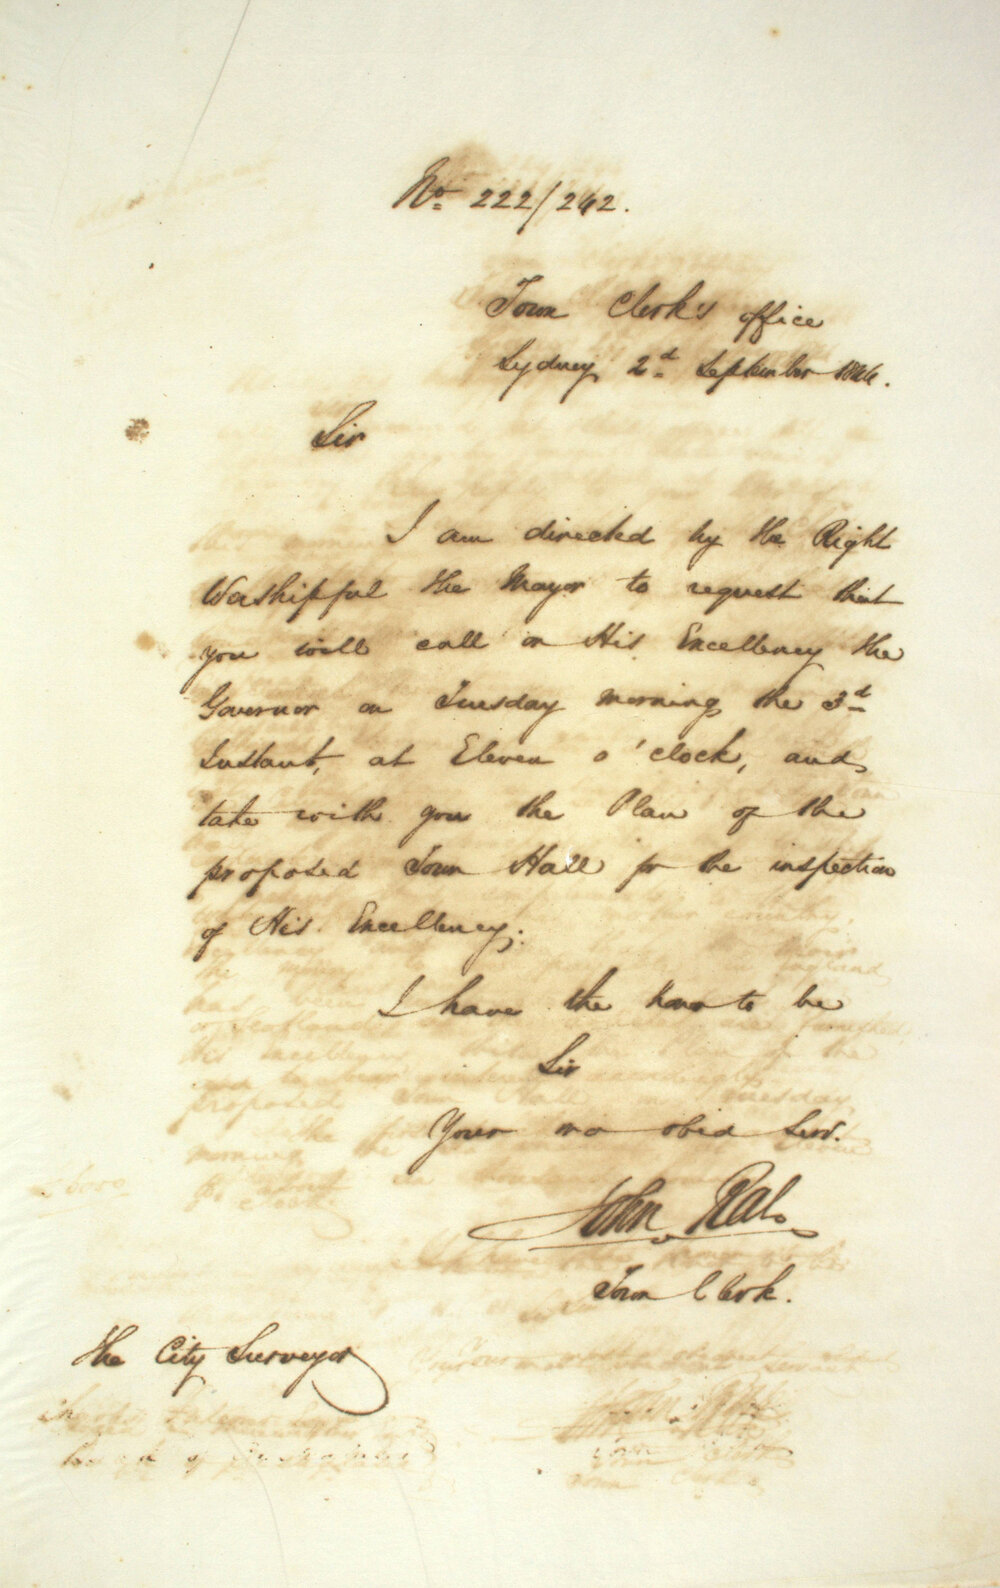 No. 222/242.
Town Clerk's office
Sydney 2d September 1844.
Sir
I am directed by the Right
Worshipful the Mayor to request that
you will call on His Excellency the
Governor on Tuesday morning the 3d
Instant, at Eleven o'clock, and
take with you the Plan of the
proposed Town Hall for the inspection
of His Excellency.
I have the honor to be
Sir
Your mo obed Serv.
John Rae
Town Clerk.
The City Surveyor